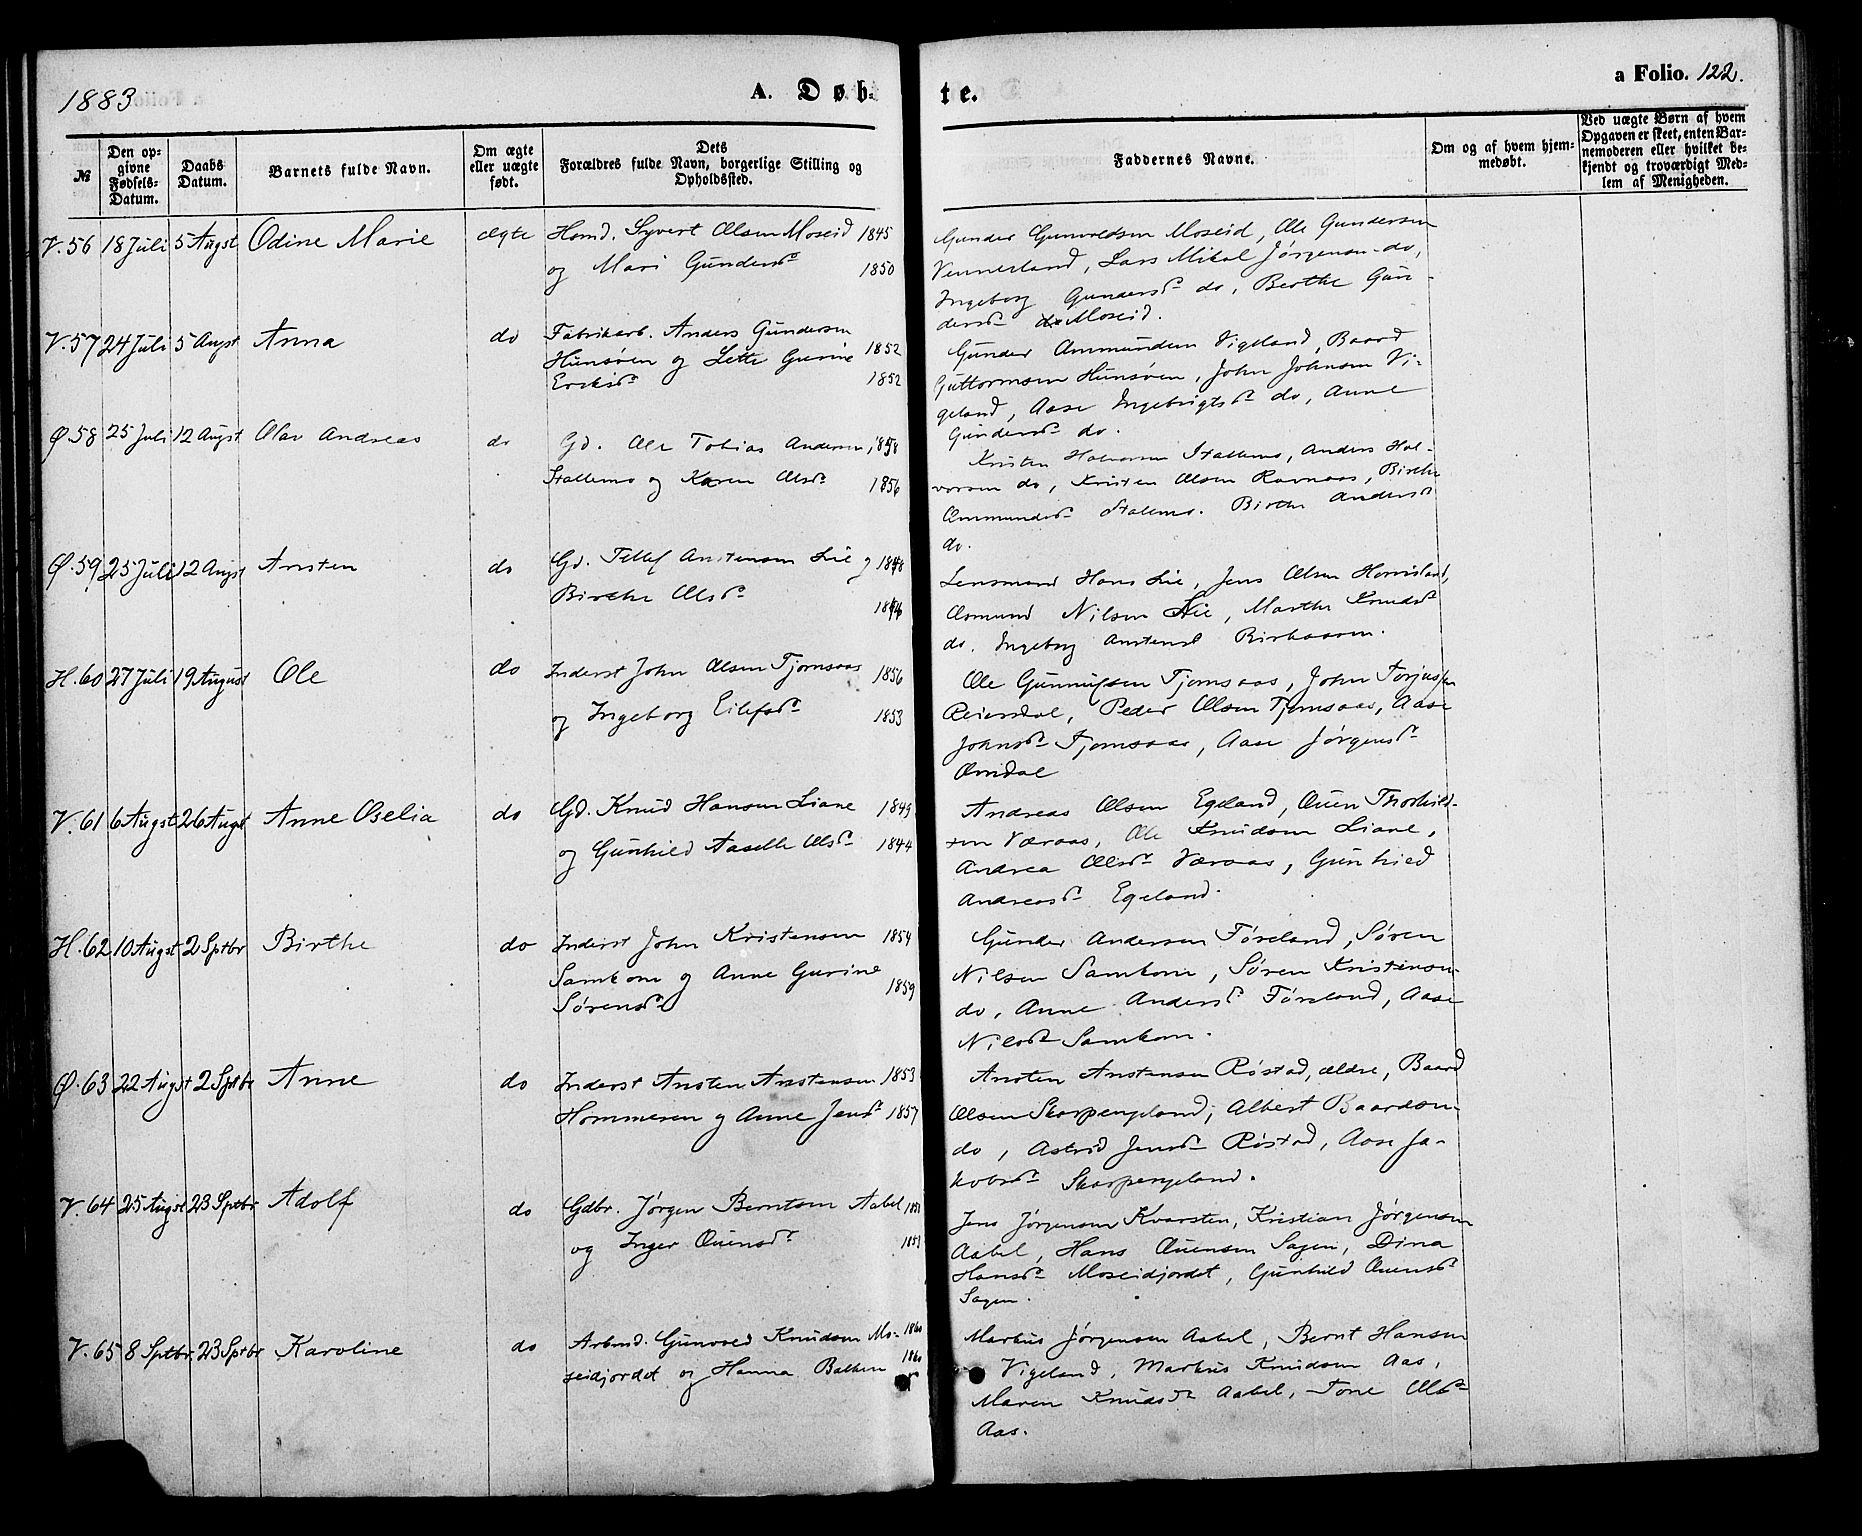 1883
A. Døb-
te.
a Folio. 122.
№
Den op-
givne
Fødsels-
Datum.
Daabs
Datum.
Barnets fulde Navn.
Om ægte
eller uægte
født.
Dets
Forældres fulde Navn, borgerlige Stilling og
Opholdssted.
Faddernes Navne.
Om og af hvem hjem-
medøbt.
Ved uægte Børn af hvem
Opgaven er skeet, enten Bar-
nemoderen eller hvilket be-
kjendt og troværdigt Med-
lem af Menigheden.
V. 56 18 Juli 5 Augst Odine Marie ægte Homd. Syvert Olsen Moseid 1845
og Mari Gundersd. 1850
Gunder Gunvoldsen Moseid, Ole Gundersen
Vennesland, Lars Mikal Jørgensen do,
Ingeborg Gundersd. do, Berthe Gun-
dersd. Moseid.
V. 57 24 Juli 5 Augst Anna do Fabrikarb. Anders Gundersen
Hunsøen og Lette Gurine 1852
Eriksd. 1852
Gunder Ommundsen Vigeland, Baard
Guttormsen Hunsøen, John Johnsen Vi-
geland, Aase Ingebrigtsd. do, Anne
Gundersd. do.
Ø. 58 25 Juli 12 Augst Olav Andreas do Gd. Ole Tobias Andersen, 1858
Stallemo og Karen Olsd. 1856
Kristen Halvorsen Stallemo, Anders Hal-
vorsen do, Kristen Olsen Ravnaas, Birthe
Ommundsd. Stalemo. Birthe Andersd.
do.
Ø. 59 25 Juli 12 Augst Ansten do Gd. Tellef Anstensen Lie og 1848
Birthe Olsd.
Lensmand Hans Lie, Jens Olsen Homsland,
Osmund Nilsen Lie, Marthe Knudsd.
do. Ingeborg Anstensd. Birkaasen.
H. 60 27 Juli 19 August Ole do Inderst John Olsen Tjomsaas 1856
og Ingeborg Eilefsd. 1853
Ole Gunnufsen Tjomsaas, John Torjussen
Reiersdal, Peder Olsen Tjomsaas, Aase
Johnsd. Tjomsaas, Aase Jørgensd.
Omdal
V. 61 6 Augst 26 Augst Anne Oselia do Gd. Knud Hansen Liane 1845
og Gunhild Aaselle Olsd. 1844
Andreas Olsen Egeland, Ouen Thorkild-
sen Væraas, Ole Knudsen Liane,
Andrea Olsd. Væraas, Gunhild
Andreasd. Egeland.
H. 62 10 Augst 2 Sptbr Birthe do Inderst John Kristensen 1854
Samkom og Anne Gurine
Sørensd. 1859
Gunder Andersen Føreland, Søren
Nilsen Samkom, Søren Kristensen
do, Anne Andersd. Føreland, Aase
Nilsd. Samkom.
Ø. 63 22 Augst 2 Sptbr Anne do Inderst Ansten Anstensen 1853
Hommeren og Anne Jensd. 1857
Ansten Anstensen Røstad, ældre, Baard
Olsen Skarpengland, Albert Baardsen
do, Astrid Jensd. Røstad, Aase Ja-
kobsd. Skarpengland.
V. 64 25 Augst 23 Sptbr Adolf do Gdbr. Jørgen Berntsen Aabel
og Inger Ouensd.
Jens Jørgensen Kvarsten, Kristian Jørgensen
Aabel, Hans Ouensen Sagen, Dina
Hansd. Moseidjordet, Gunhild Ouensd.
Sagen.
V. 65 8 Sptbr. 23 Sptbr Karoline do Arbmd. Gunvald Knudsen Mo- 1860
seidjordet og Hanna Balken 1860
Markus Jørgensen Aabel, Bernt Hansen
Vigeland, Markus Knudsen Aas,
Maren Knudsd. Aabel, Tone Olsd.
Aas.